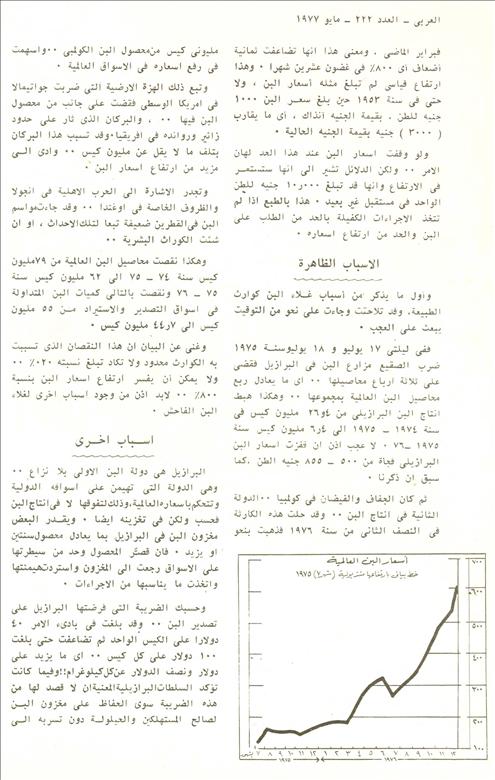 العربي – العدد ٢٢٢ – مايو ١٩٧٧
فبراير الماضى . ومعنى هذا انها تضاعفت ثمانية
أضعاف أى ٨٠٠٪ فى غضون عشرين شهرا . وهذا
ارتفاع قياسى لم تبلغ مثله أسعار البن ، ولا
حتى فى سنة ١٩٥٣ حين بلغ سعر البن ١٠٠٠
جنيه للطن . بقيمة الجنيه آنذاك ، أى ما يقارب
( ٣٠٠٠ ) جنيه بقيمة الجنيه الحالية .
ولو وقفت أسعار البن عند هذا الحد لهان
الامر ٠٠ ولكن الدلائل تشير الى انها ستستمر
فى الارتفاع وانها قد تبلغ ١٠٫٠٠٠ جنيه للطن
الواحد فى مستقبل غير بعيد . هذا بالطبع اذا لم
تتخذ الاجراءات الكفيلة بالحد من الطلب على
البن والحد من ارتفاع اسعاره .
الاسباب الظاهرة
واول ما يذكر من أسباب غلاء البن كوارث
الطبيعة. وقد تلاحقت وجاءت على نحو من التوقيت
يبعث على العجب .
ففى ليلتى ١٧ يوليو و ١٨ يوليو سنة ١٩٧٥
ضرب الصقيع مزارع البن فى البرازيل فقضى
على ثلاثة ارباع محاصيلها ٠٠ اى ما يعادل ربع
محاصيل البن العالمية بمجموعها ٠٠ وهكذا هبط
انتاج البن البرازيلى من ٢٦٫٤ مليون كيس فى
سنة ١٩٧٤ – ١٩٧٥ الى ٦٫٤ مليون كيس سنة
١٩٧٥ – ٧٦ . لا عجب اذن ان قفزت اسعار البن
البرازيلى فجأة من ٥٠٠ – ٨٥٥ جنيه الطن .كما
سبق ان ذكرنا .
ثم كان الجفاف والفيضان فى كولمبيا ٠٠ الدولة
الثانية فى انتاج البن ٠٠ وقد حلت هذه الكارثة
فى النصف الثانى من سنة ١٩٧٦ فذهبت بنحو
أسعار البن العالمية
٧٠٠
٦٠٠
٥٠٠
٤٠٠
٣٠٠
٢٠٠
١٠٠
١٩٧٥
١٩٧٦
مليونى كيس من محصول البن الكولمبى ٠٠ واسهمت
فى رفع اسعاره فى الاسواق العالمية .
وتبع ذلك الهزة الارضية التى ضربت جواتيمالا
فى امريكا الوسطى فقضت على جانب من محصول
البن فيها ٠٠ ، والبركان الذى ثار على حدود
زائير وروانده فى افريقيا.وقد تسبب هذا البركان
بتلف ما لا يقل عن مليون كيس ٠٠ وادى الى
مزيد من ارتفاع اسعار البن .
وتجدر الاشارة الى الحرب الاهلية فى انجولا
والظروف الخاصة فى اوغندا ٠٠ وقد جاءت مواسم
البن فى القطرين ضعيفة تبعا لتلك الاحداث ، او ان
شئت الكوراث البشرية ٠٠
وهكذا نقصت محاصيل البن العالمية من ٧٩ مليون
كيس سنة ٧٤ – ٧٥ الى ٦٢ مليون كيس سنة
٧٥ – ٧٦ ونقصت بالتالى كميات البن المتداولة
فى اسواق التصدير والاستيراد من ٥٥ مليون
كيس الى ٤٤٫٧ مليون كيس .
وغنى عن البيان ان هذا النقصان الذى تسببت
به الكوارث محدود ولا تكاد تبلغ نسبته ٢٠٪ ٠٠
ولا يمكن أن يفسر ارتفاع اسعار البن بنسبة
٨٠٠٪ ٠٠ لابد اذن من وجود اسباب اخرى لغلاء
البن الفاحش .
اسباب اخرى
البرازيل هى دولة البن الاولى بلا نزاع ٠٠
وهى الدولة التى تهيمن على اسواقه الدولية
وتتحكم باسعاره العالمية، وذلك لتفوقها لا فى انتاج البن
فحسب ولكن فى تخزينه ايضا . ويقدر البعض
مخزون البن فى البرازيل بما يعادل محصول سنتين
او يزيد . فان قصّر المحصول وحد من سيطرتها
على الاسواق رجعت الى المخزون واستردت هيمنتها
واتخذت ما يناسبها من الاجراءات .
وحسبك الضريبة التى فرضتها البرازيل على
تصدير البن ٠٠ وقد بلغت فى بادىء الامر ٤٠
دولارا على الكيس الواحد ثم تضاعفت حتى بلغت
١٠٠ دولار على كل كيس ٠٠ اى ما يزيد على
دولار ونصف الدولار عن كل كيلوغرام !! وفيما كانت
تؤكد السلطات البرازيلية المعنية ان لا قصد لها من
هذه الضريبة سوى الحفاظ على مخزون البن
لصالح المستهلكين والحيلولة دون تسربه الى